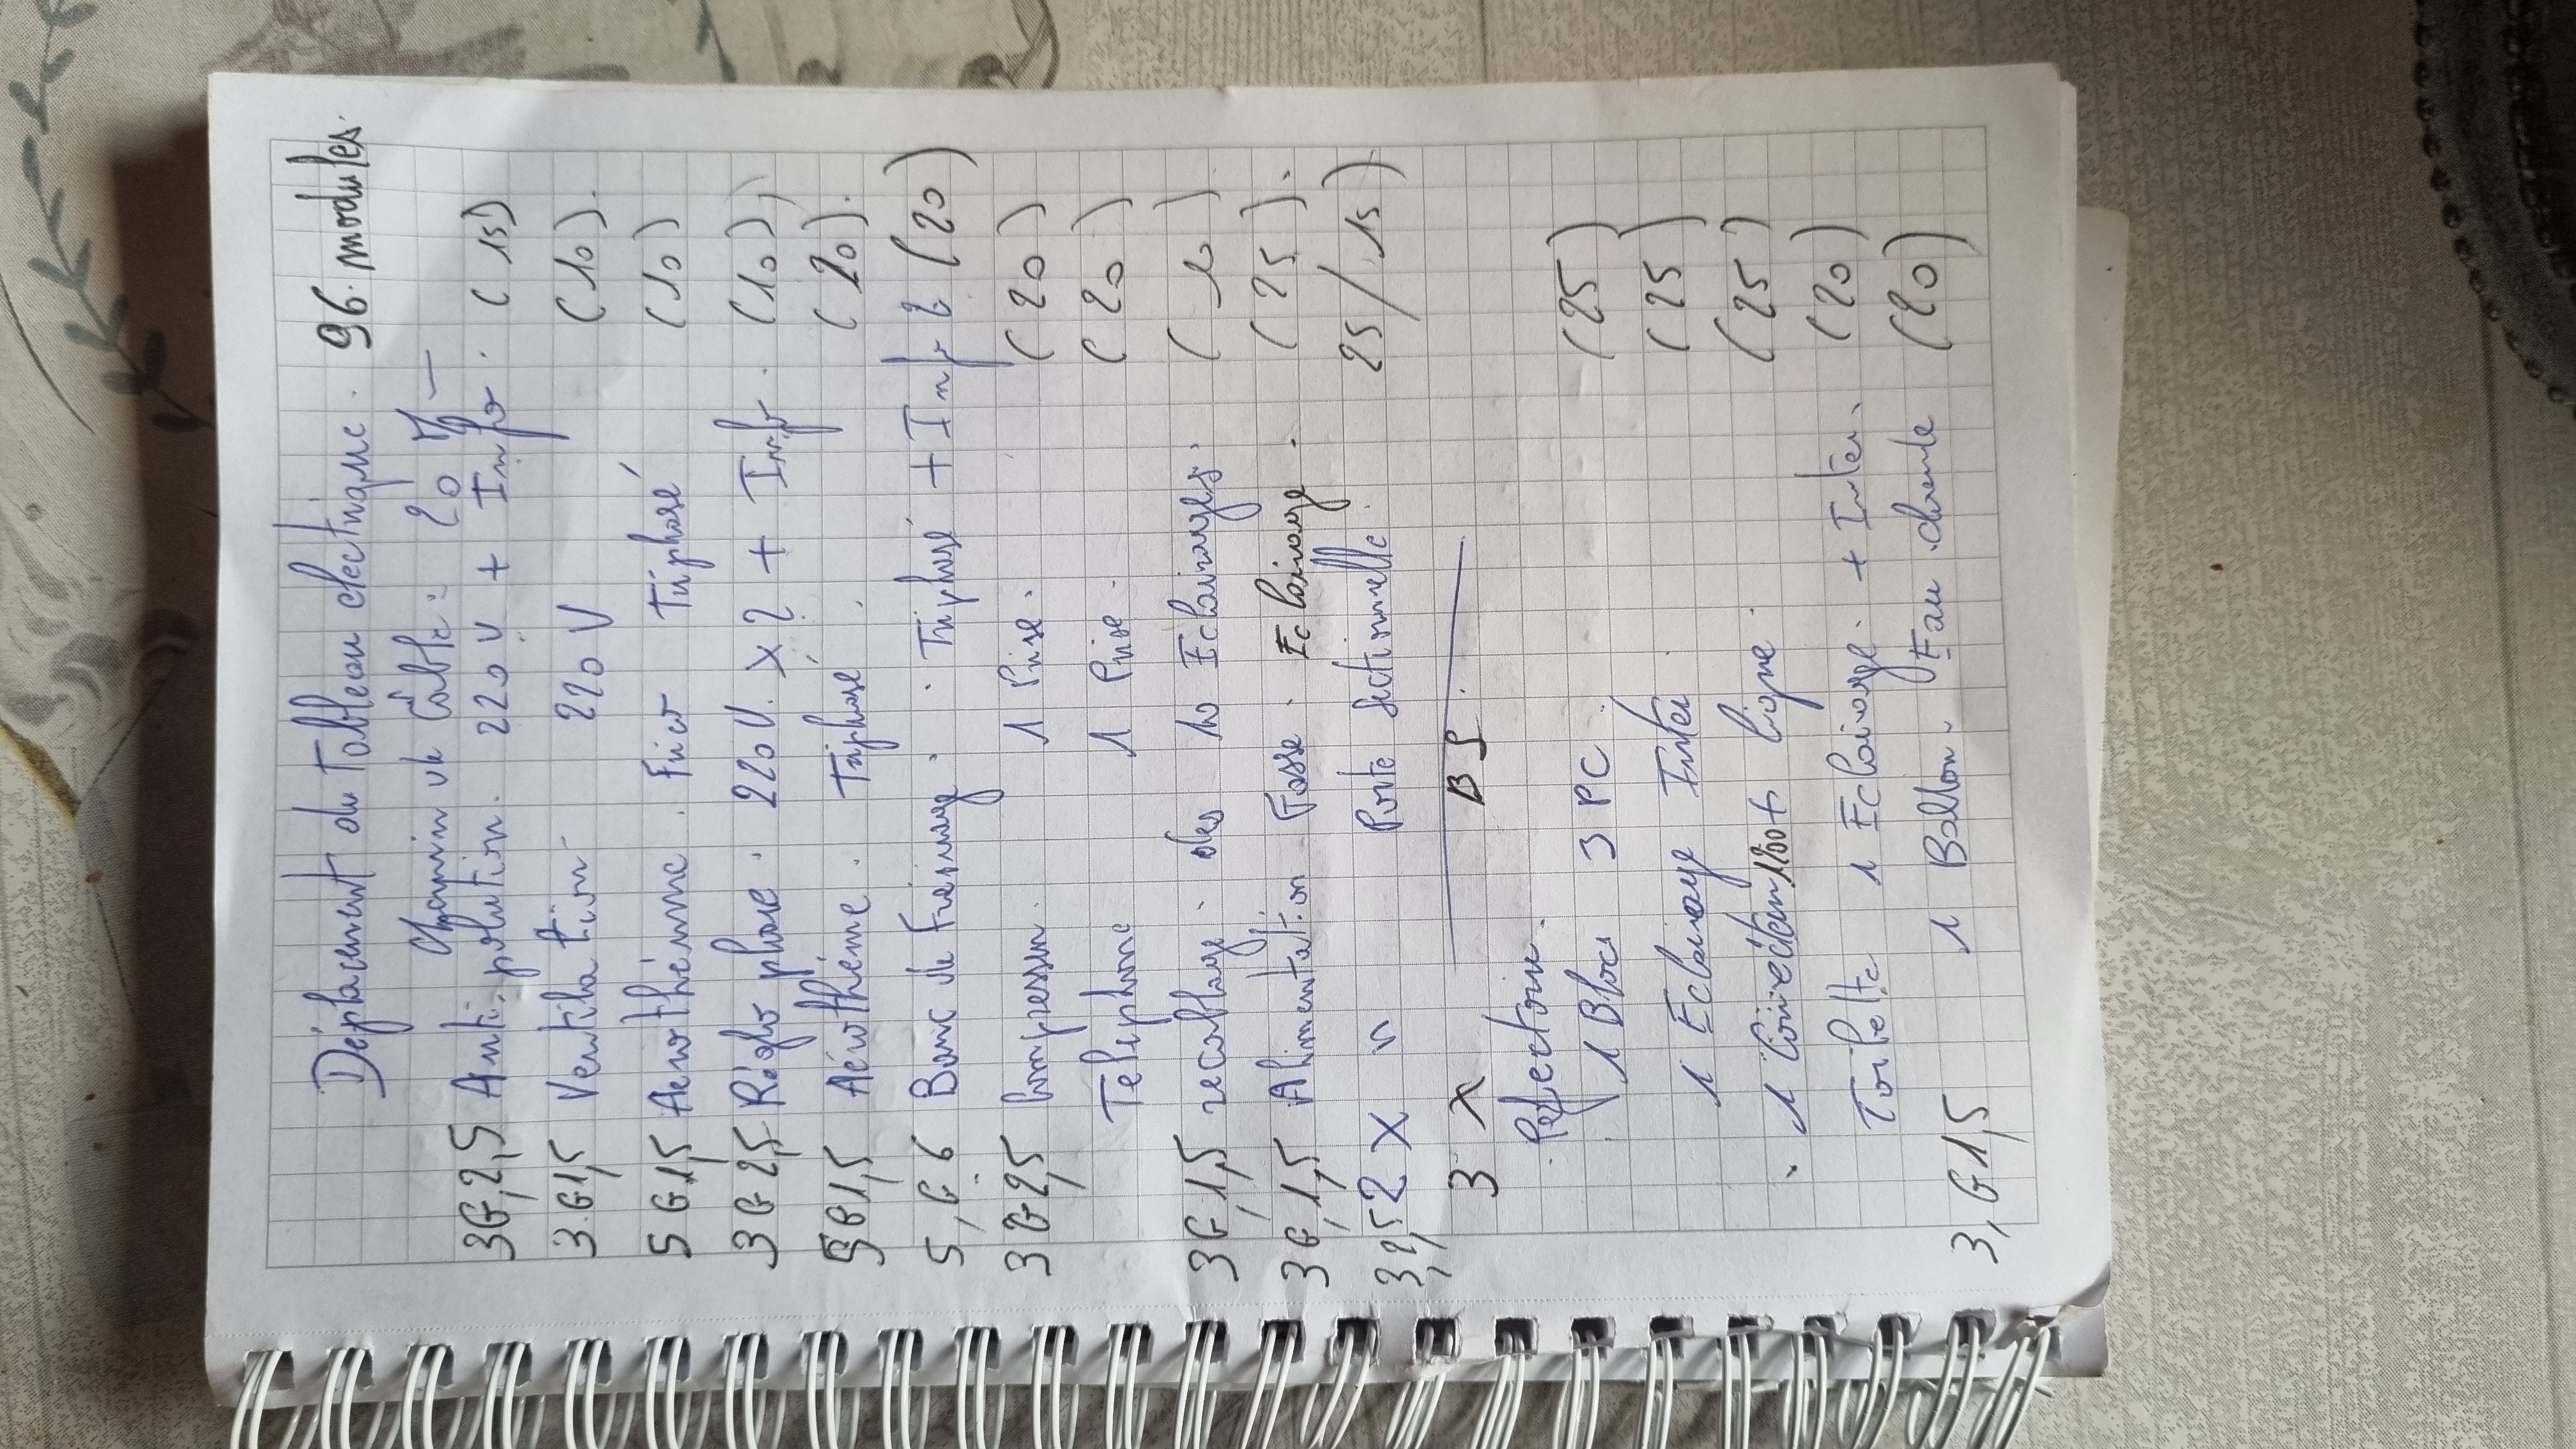 Déplacement du Tableau électrique. 96 modules.
de Cable: 20 M
3G,2,5 Anti.polution. 220V + Info. (15)
3.G1,5 Ventilation 220V (10).
5 G1,5 Aerothèrme. Triphasé (10)
3 G 2,5 Réglo phare. 220V. X2 + Info. (10)
5G1,5 Aérothème. Triphasé. (20).
5,G.6 Banc de Freinage. . Triphasé + Info 2 (20)
3 G 2,5 Compresseur. 1 Prise. (20)
Telephone 1 Prise. (20)
3G,1,5 recablage. des 10 Eclairages. (10)
3G,1,5 Alimentation Fosse. Eclairage. (25).
2 X " Porte Sectionnelle. 25/15)
3 X BS.
Refectoire.
1 Blocs 3 PC. (25)
1 Eclairage Inter (25)
1 ligne. (25)
Toilette 1 Eclairage. + Inter. (20)
3,G1,5 1 Ballon. Eau chaude (20)